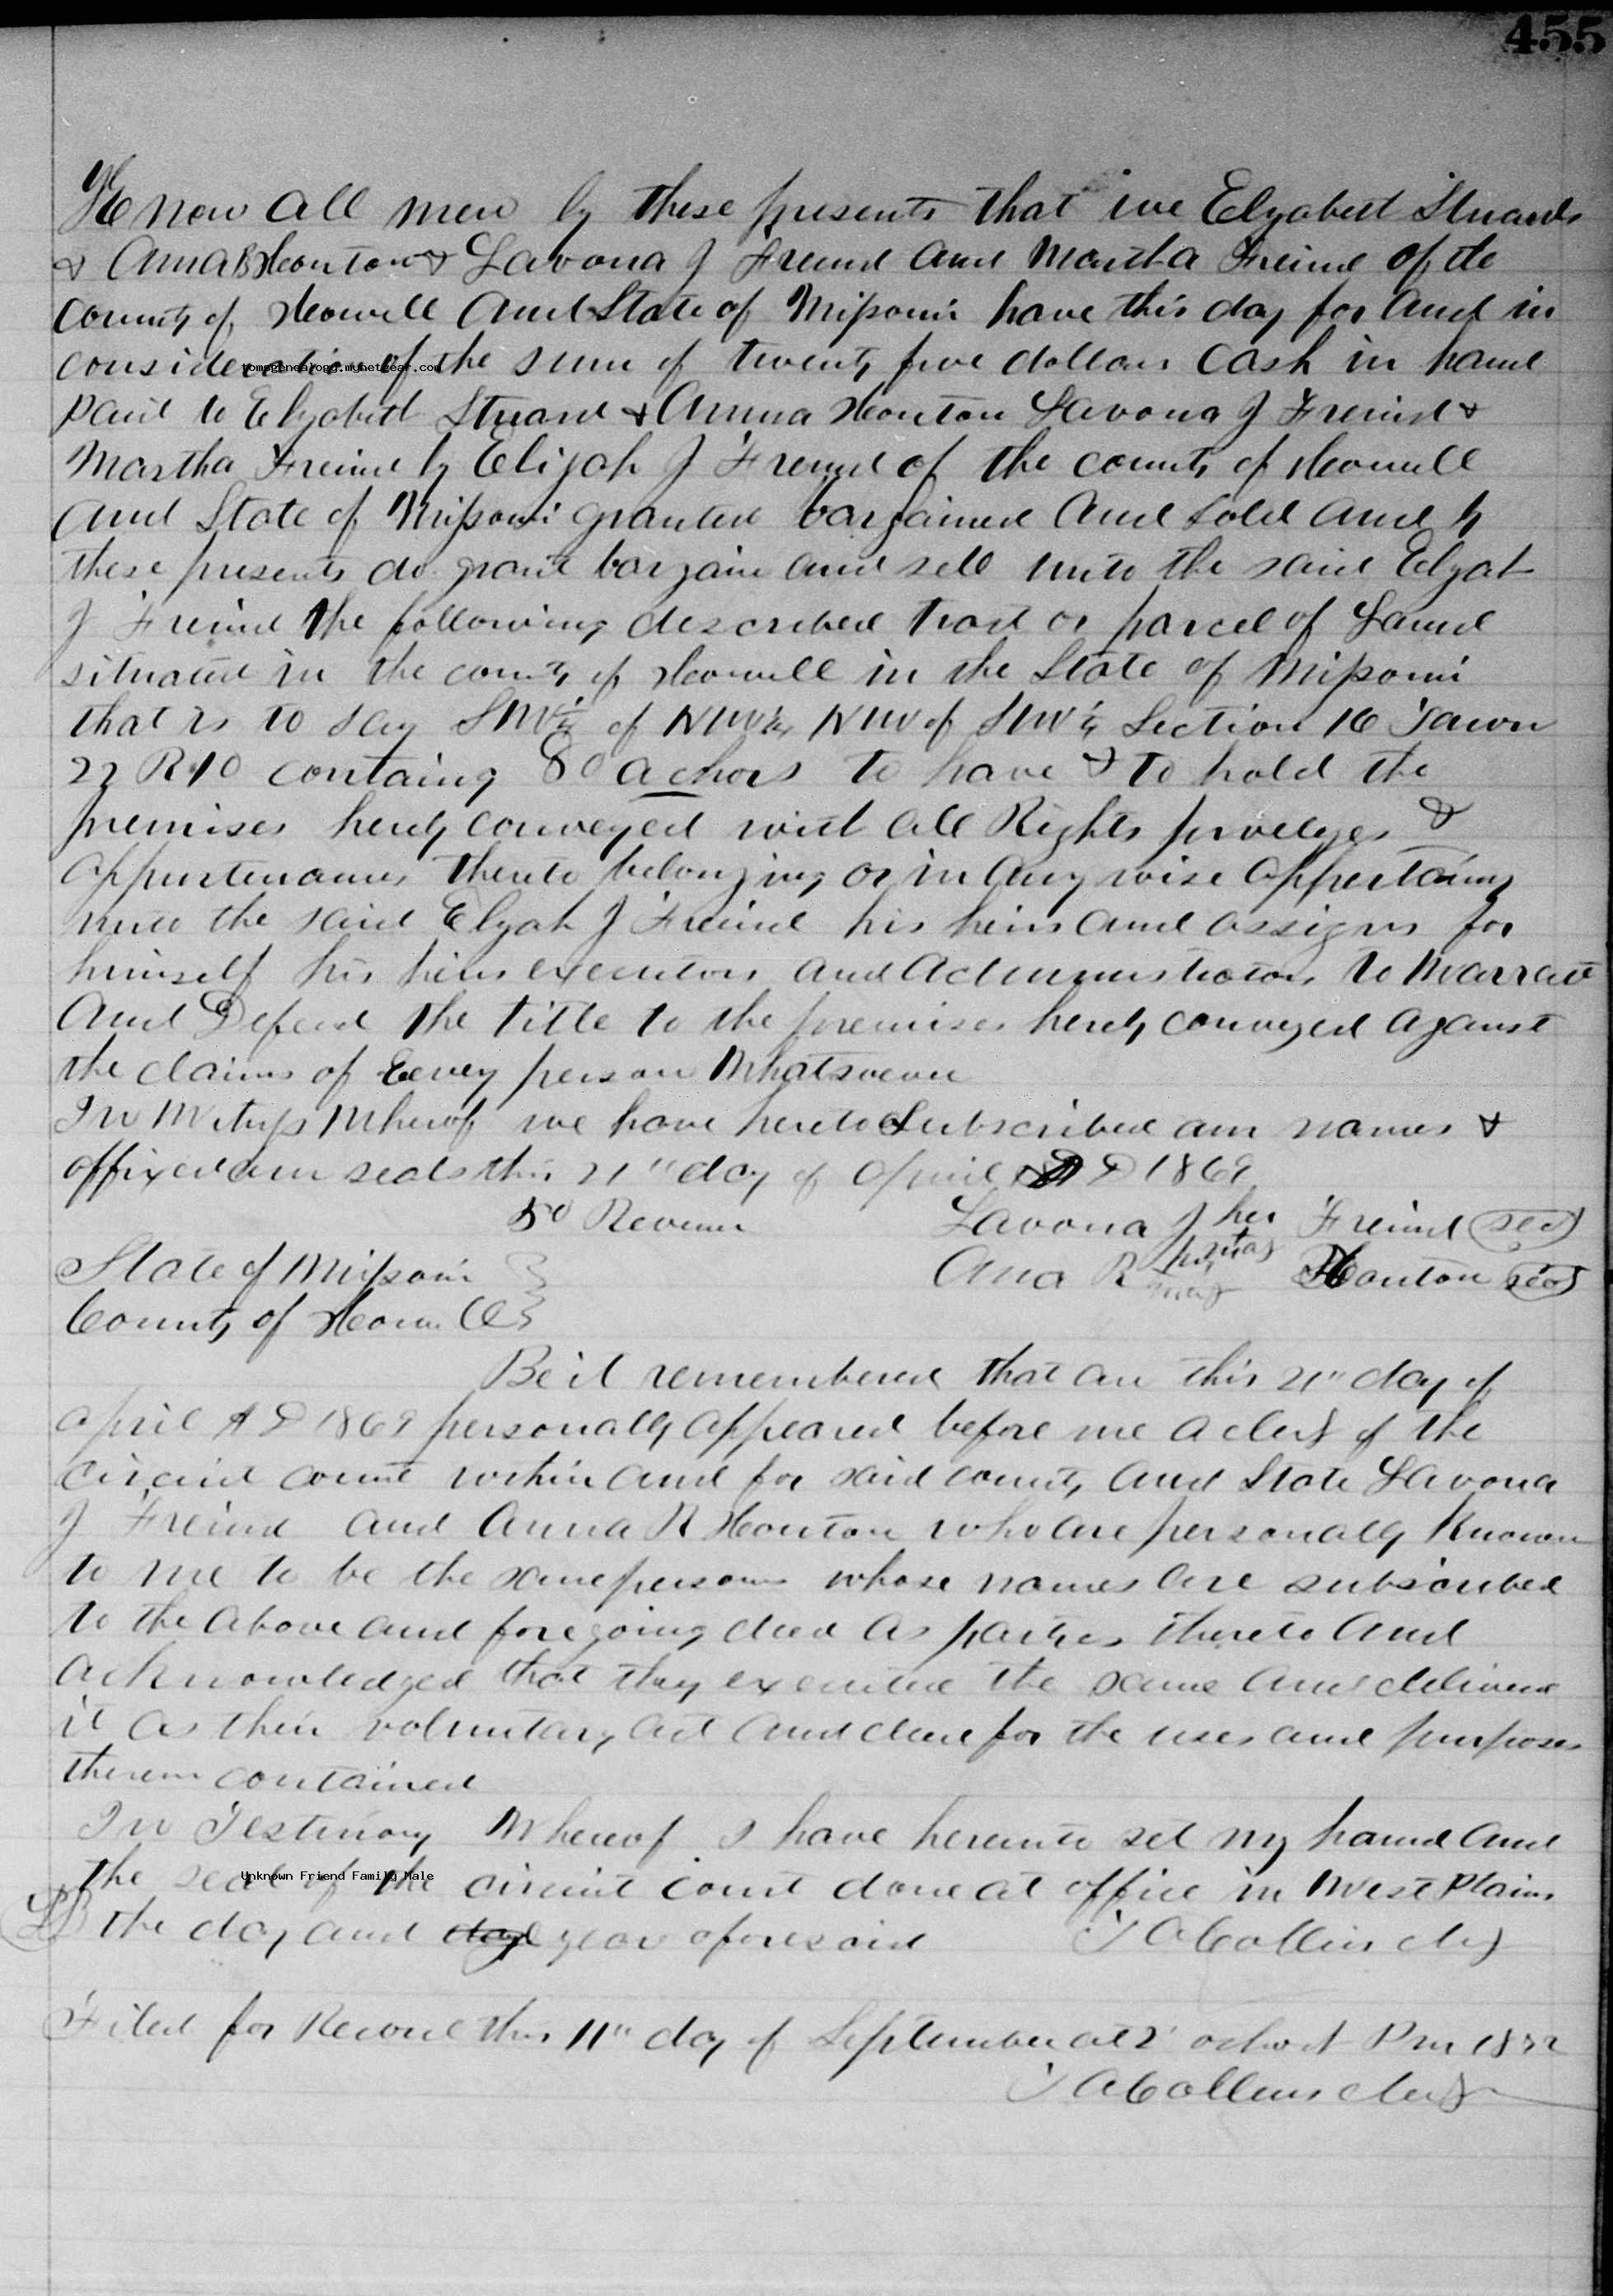 455
Know all men by these presents that we Elyabett Stuards
& Anna B Houton & Lavona J Freind and Martha Freind of the
County of Howell and State of Missouri have this day for and in
consideration of the sum of twenty five dollars cash in hand
tomsgenealogy.mynetgear.com
paid to Elyabett Stuard & Anna Houton Lavona J Freind &
Martha Freind by Elijah J Freind of the county of Howell
and State of Missouri granted bargained and sold and by
these presents do grant bargain and sell unto the said Elyah
J Freind the following described tract or parcel of Land
situated in the county of Howell in the State of Missouri
that is to say SW¼ of NW¼, NW of SW¼ Section 16 Town
22 R 10 containg 80 achors to have & to hold the
premises hereby conveyed with all Rights priveleges &
appurtenances thereto belonging or in any wise appertaing
unto the said Elyah J Freind his heirs and assigns for
himself his heirs executors and administrators to Warrant
and Defend the title to the premises hereby conveyed against
the claims of Every person Whatsoever
In Witness Wherof we have hereto Subscribed our names &
affixed our seals this 21" day of April A D 1869
50 Revenue Lavona J her Freind (seal)
mark
State of Missouri Ana R her Houton (seal)
mark
County of Howell
Be it remembered that on this 21" day of
April A D 1869 personally appeared before me a clerk of the
circuit court within and for said county and State Lavona
J Freind and Anna R Houton who are personally Known
to me to be the same persons whose names are subscribed
to the above and foregoing deed as parties thereto and
acknowledged that they executed the same and delivered
it as their voluntary act and deed for the uses and purposes
therein contained
In Testimony Whereof I have hereunto set my hand and
the seal of the circuit court done at office in West Plains
Unknown Friend Family Male
the day and year aforesaid T A Collins clerk
Filed for Record this 11" day of September at 2 oclock Pm 1872
T A Collins clerk